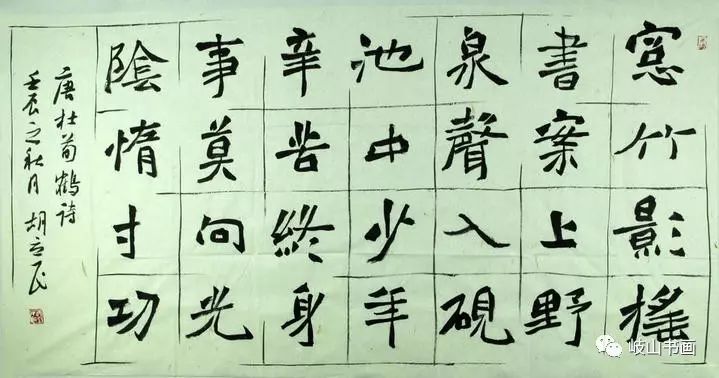 窓竹影搖
書案上野
泉聲入硯
池中少年
辛苦終身
事莫向光
陰惰寸功
唐杜荀鶴詩
壬辰之秋月 胡立民
岐山书画